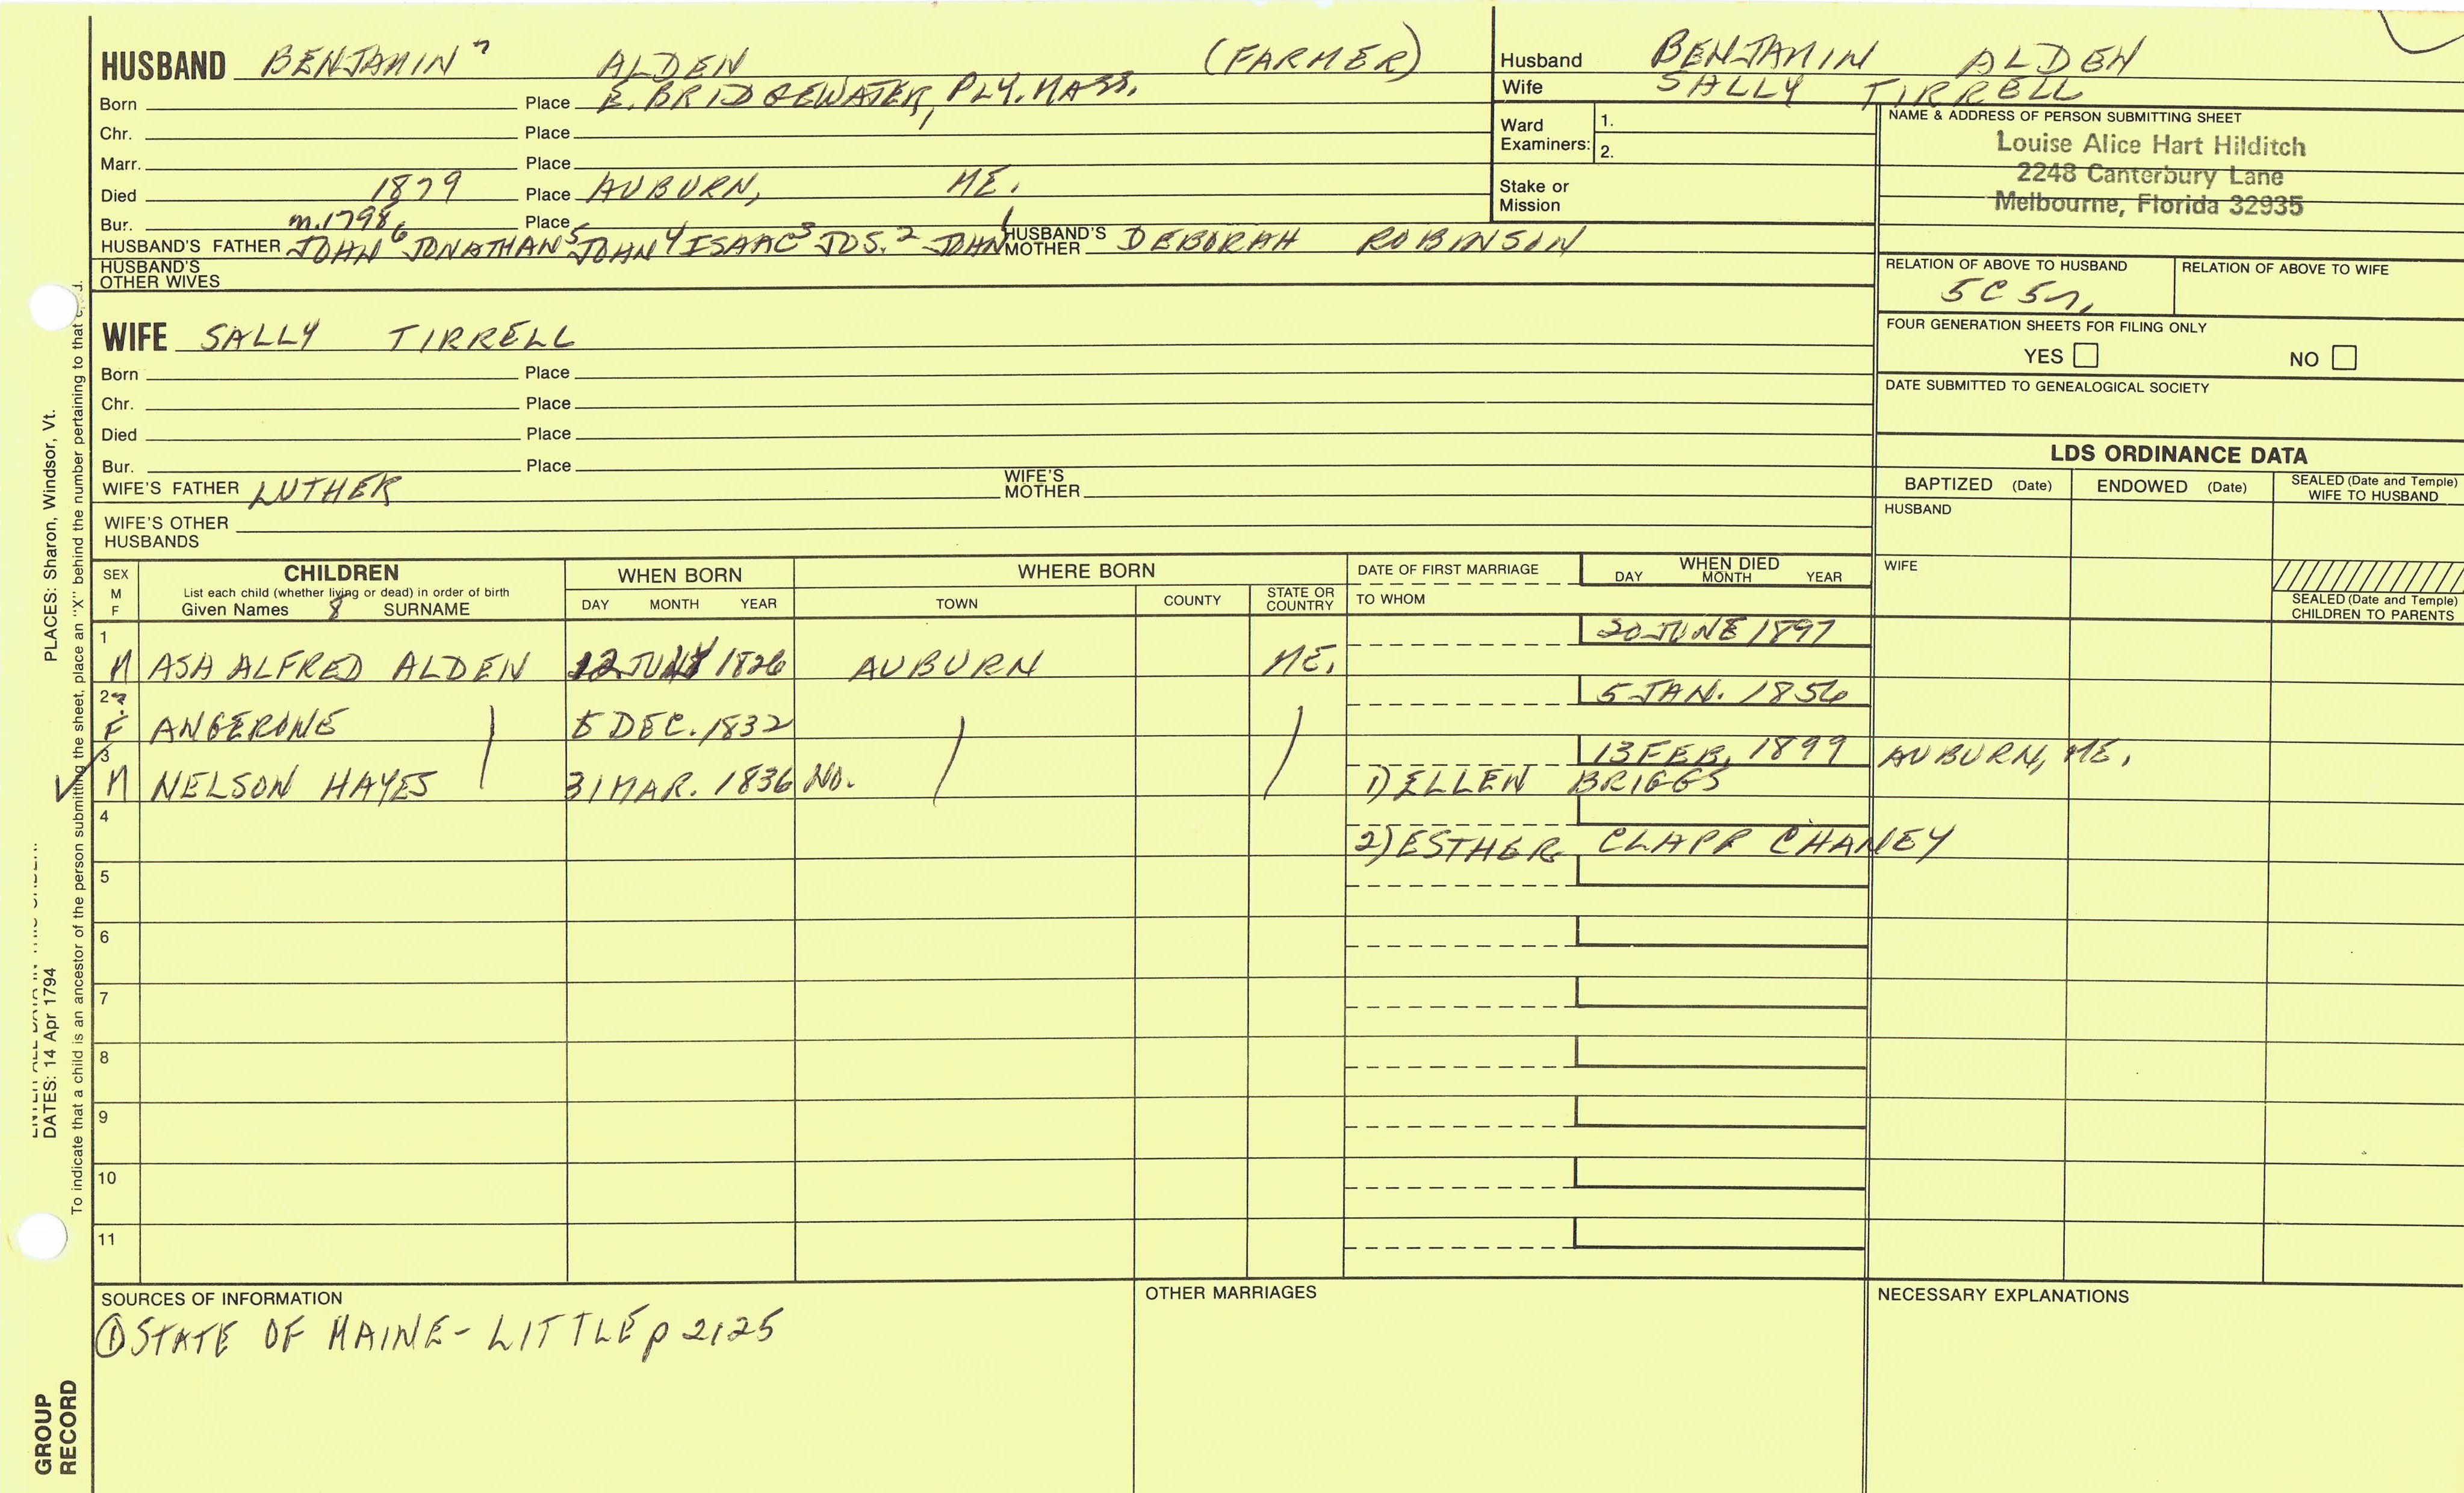 HUSBAND BENJAMIN 7 ALDEN (FARMER)
Born Place E. BRIDGEWATER, PLY. MASS.
Chr. Place
Marr. Place
Died 1879 Place AUBURN, ME.
Bur. m.1798 Place
HUSBAND'S FATHER JOHN 6 JONATHAN 5 JOHN 4 ISAAC 3 JOS. 2 JOHN 1 HUSBAND'S MOTHER DEBORAH ROBINSON
HUSBAND'S OTHER WIVES
WIFE SALLY TIRRELL
Born Place
Chr. Place
Died Place
Bur. Place
WIFE'S FATHER LUTHER WIFE'S MOTHER
WIFE'S OTHER HUSBANDS
Husband BENJAMIN ALDEN
Wife SALLY TIRRELL
Ward Examiners: 1.
2.
Stake or Mission
NAME & ADDRESS OF PERSON SUBMITTING SHEET
Louise Alice Hart Hilditch
2248 Canterbury Lane
Melbourne, Florida 32935
RELATION OF ABOVE TO HUSBAND RELATION OF ABOVE TO WIFE
5C 5r.
FOUR GENERATION SHEETS FOR FILING ONLY
YES NO
DATE SUBMITTED TO GENEALOGICAL SOCIETY
LDS ORDINANCE DATA
BAPTIZED (Date) ENDOWED (Date) SEALED (Date and Temple) WIFE TO HUSBAND
HUSBAND
WIFE
SEALED (Date and Temple) CHILDREN TO PARENTS
SEX M F CHILDREN WHEN BORN WHERE BORN DATE OF FIRST MARRIAGE WHEN DIED
List each child (whether living or dead) in order of birth
Given Names 8 SURNAME DAY MONTH YEAR TOWN COUNTY STATE OR COUNTRY TO WHOM DAY MONTH YEAR
1 20 JUNE 1897
M ASA ALFRED ALDEN 12 1826 AUBURN ME.
2 ? 5 JAN. 1856
F ANGERONE 5 DEC. 1832
3 13 FEB. 1899 AUBURN, ME.
M NELSON HAYES 31 MAR. 1836 NO. 1) ELLEN BRIGGS
4 2) ESTHER CLAPP CHANEY
5
6
7
8
9
10
11
SOURCES OF INFORMATION OTHER MARRIAGES NECESSARY EXPLANATIONS
① STATE OF MAINE - LITTLE p 2125
PLACES: Sharon, Windsor, Vt.
DATES: 14 Apr 1794
To indicate that a child is an ancestor of the person submitting the sheet, place an "X" behind the number pertaining to that
GROUP RECORD